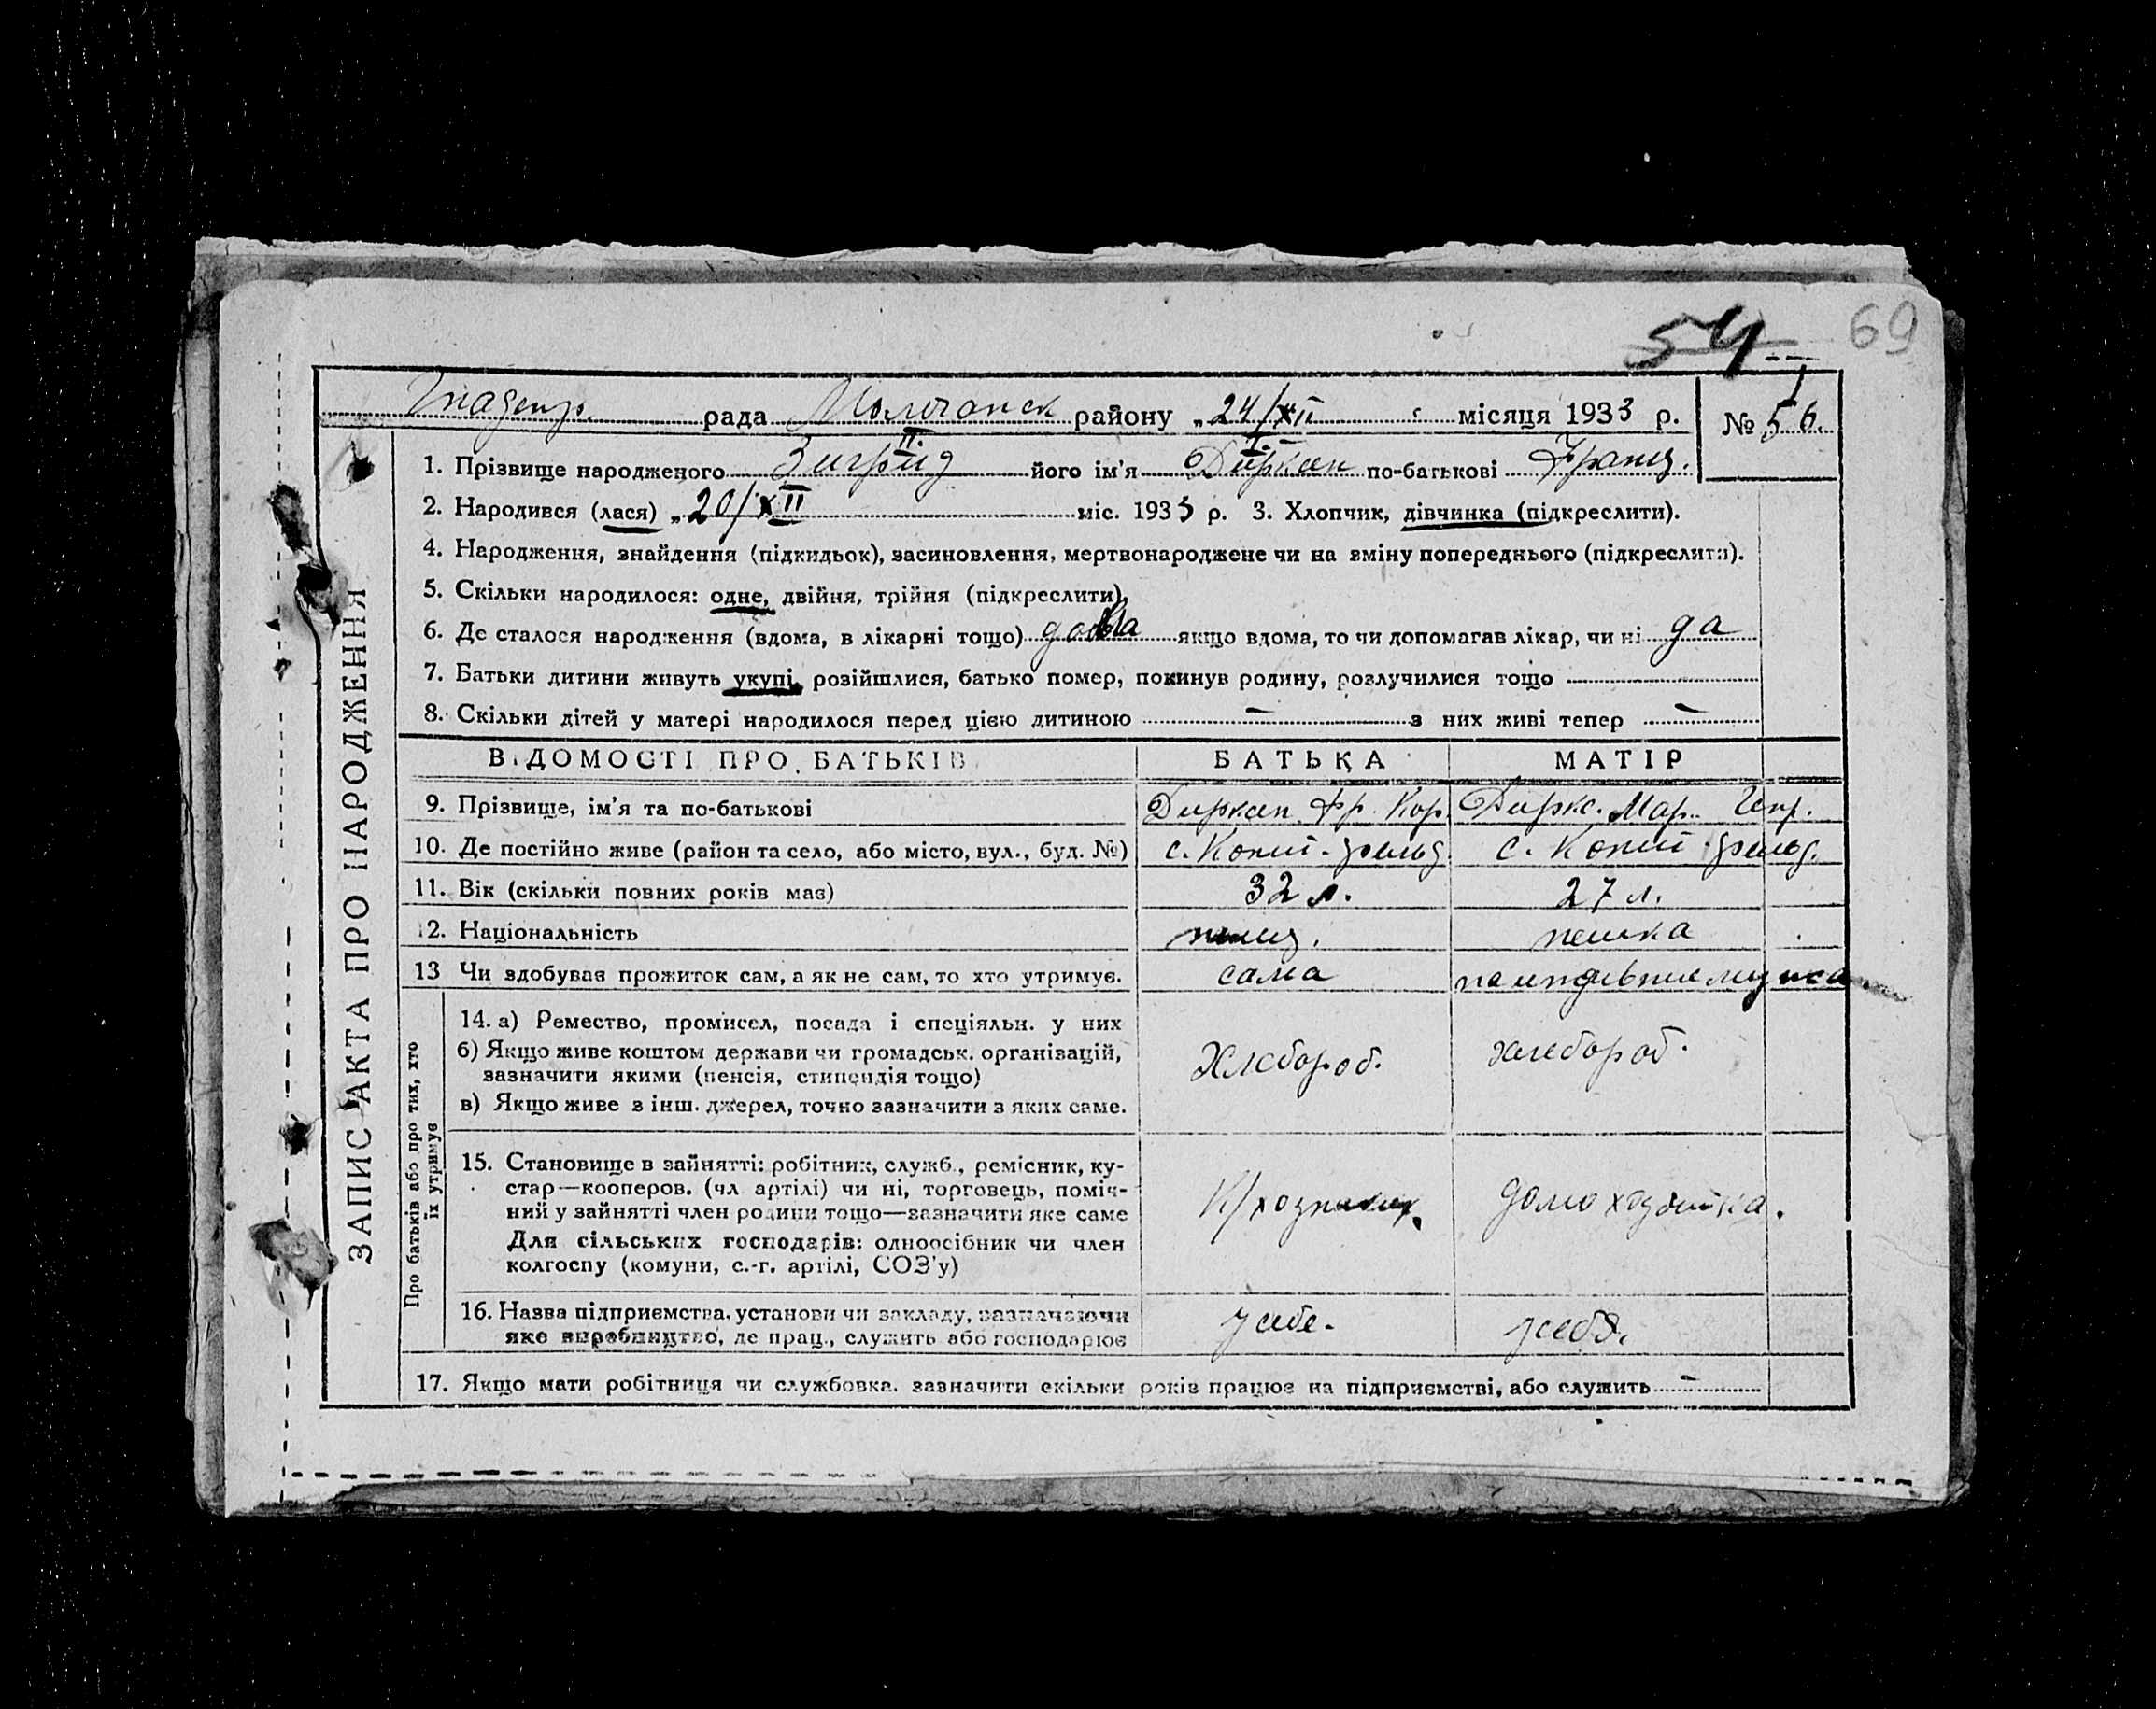 54 69
Гнаденф. рада Молочанск району „24/XII місяця 1933 р. № 56.
ЗАПИС АКТА ПРО НАРОДЖЕННЯ
II. I.
1. Прізвище народженого Зигрид його ім'я Дирксен по-батькові Франц.
2. Народився (лася) „20/XII міс. 1933 р. 3. Хлопчик, дівчинка (підкреслити).
4. Народження, знайдення (підкидьок), засиновлення, мертвонароджене чи на зміну попереднього (підкреслити).
5. Скільки народилося: одне, двійня, трійня (підкреслити).
6. Де сталося народження (вдома, в лікарні тощо) дома якщо вдома, то чи допомагав лікар, чи ні да
7. Батьки дитини живуть укупі, розійшлися, батько помер, покинув родину, розлучилися тощо
8. Скільки дітей у матері народилося перед цією дитиною – з них живі тепер –
ВІДОМОСТІ ПРО БАТЬКІВ БАТЬКА МАТІР
9. Прізвище, ім'я та по-батькові Дирксен. Фр. Кор. Диркс. Мар. Генр.
10. Де постійно живе (район та село, або місто, вул., буд. №) с. Конт-фельд с. Конт-фельд.
11. Вік (скільки повних років має) 32 л. 27 л.
12. Національність немц. немка
13 Чи здобував прожиток сам, а як не сам, то хто утримує. сама на иждивние мужа
Про батьків або про тих, хто їх утримує
14. а) Ремество, промисел, посада і спеціяльн. у них
б) Якщо живе коштом держави чи громадськ. організацій,
зазначити якими (пенсія, стипендія тощо) Хлебороб. хлебороб.
в) Якщо живе з інш. джерел, точно зазначити з яких саме.
15. Становище в зайнятті: робітник, служб., ремісник, ку-
стар—кооперов. (чл. артілі) чи ні, торговець, поміч-
ний у зайнятті член родини тощо—зазначити яке саме домохозяйка.
Для сільських господарів: одноосібник чи член
колгоспу (комуни, с.-г. артілі, СОЗ'у)
16. Назва підприємства, установи чи закладу, зазначаючи
яке виробництво, де прац., служить або господарює у себе. у себя.
17. Якщо мати робітниця чи службовка, зазначити скільки років працює на підприємстві, або служить –